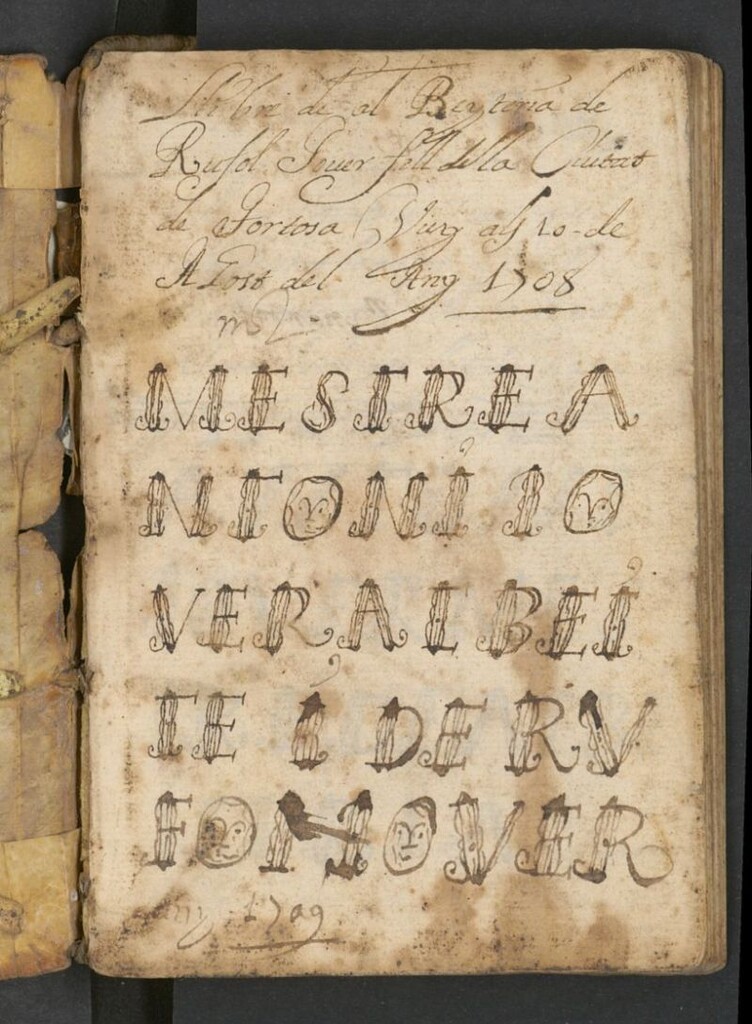 Llibre de al Beyteria de
Rufol Jouer fill de la Ciutat
de Tortosa Vuy als 10 de
AGost del Any 1708
MESTRE A
NTONI IO
VER ALBEI
TE I DE RV
FO IOVER
Any 1709